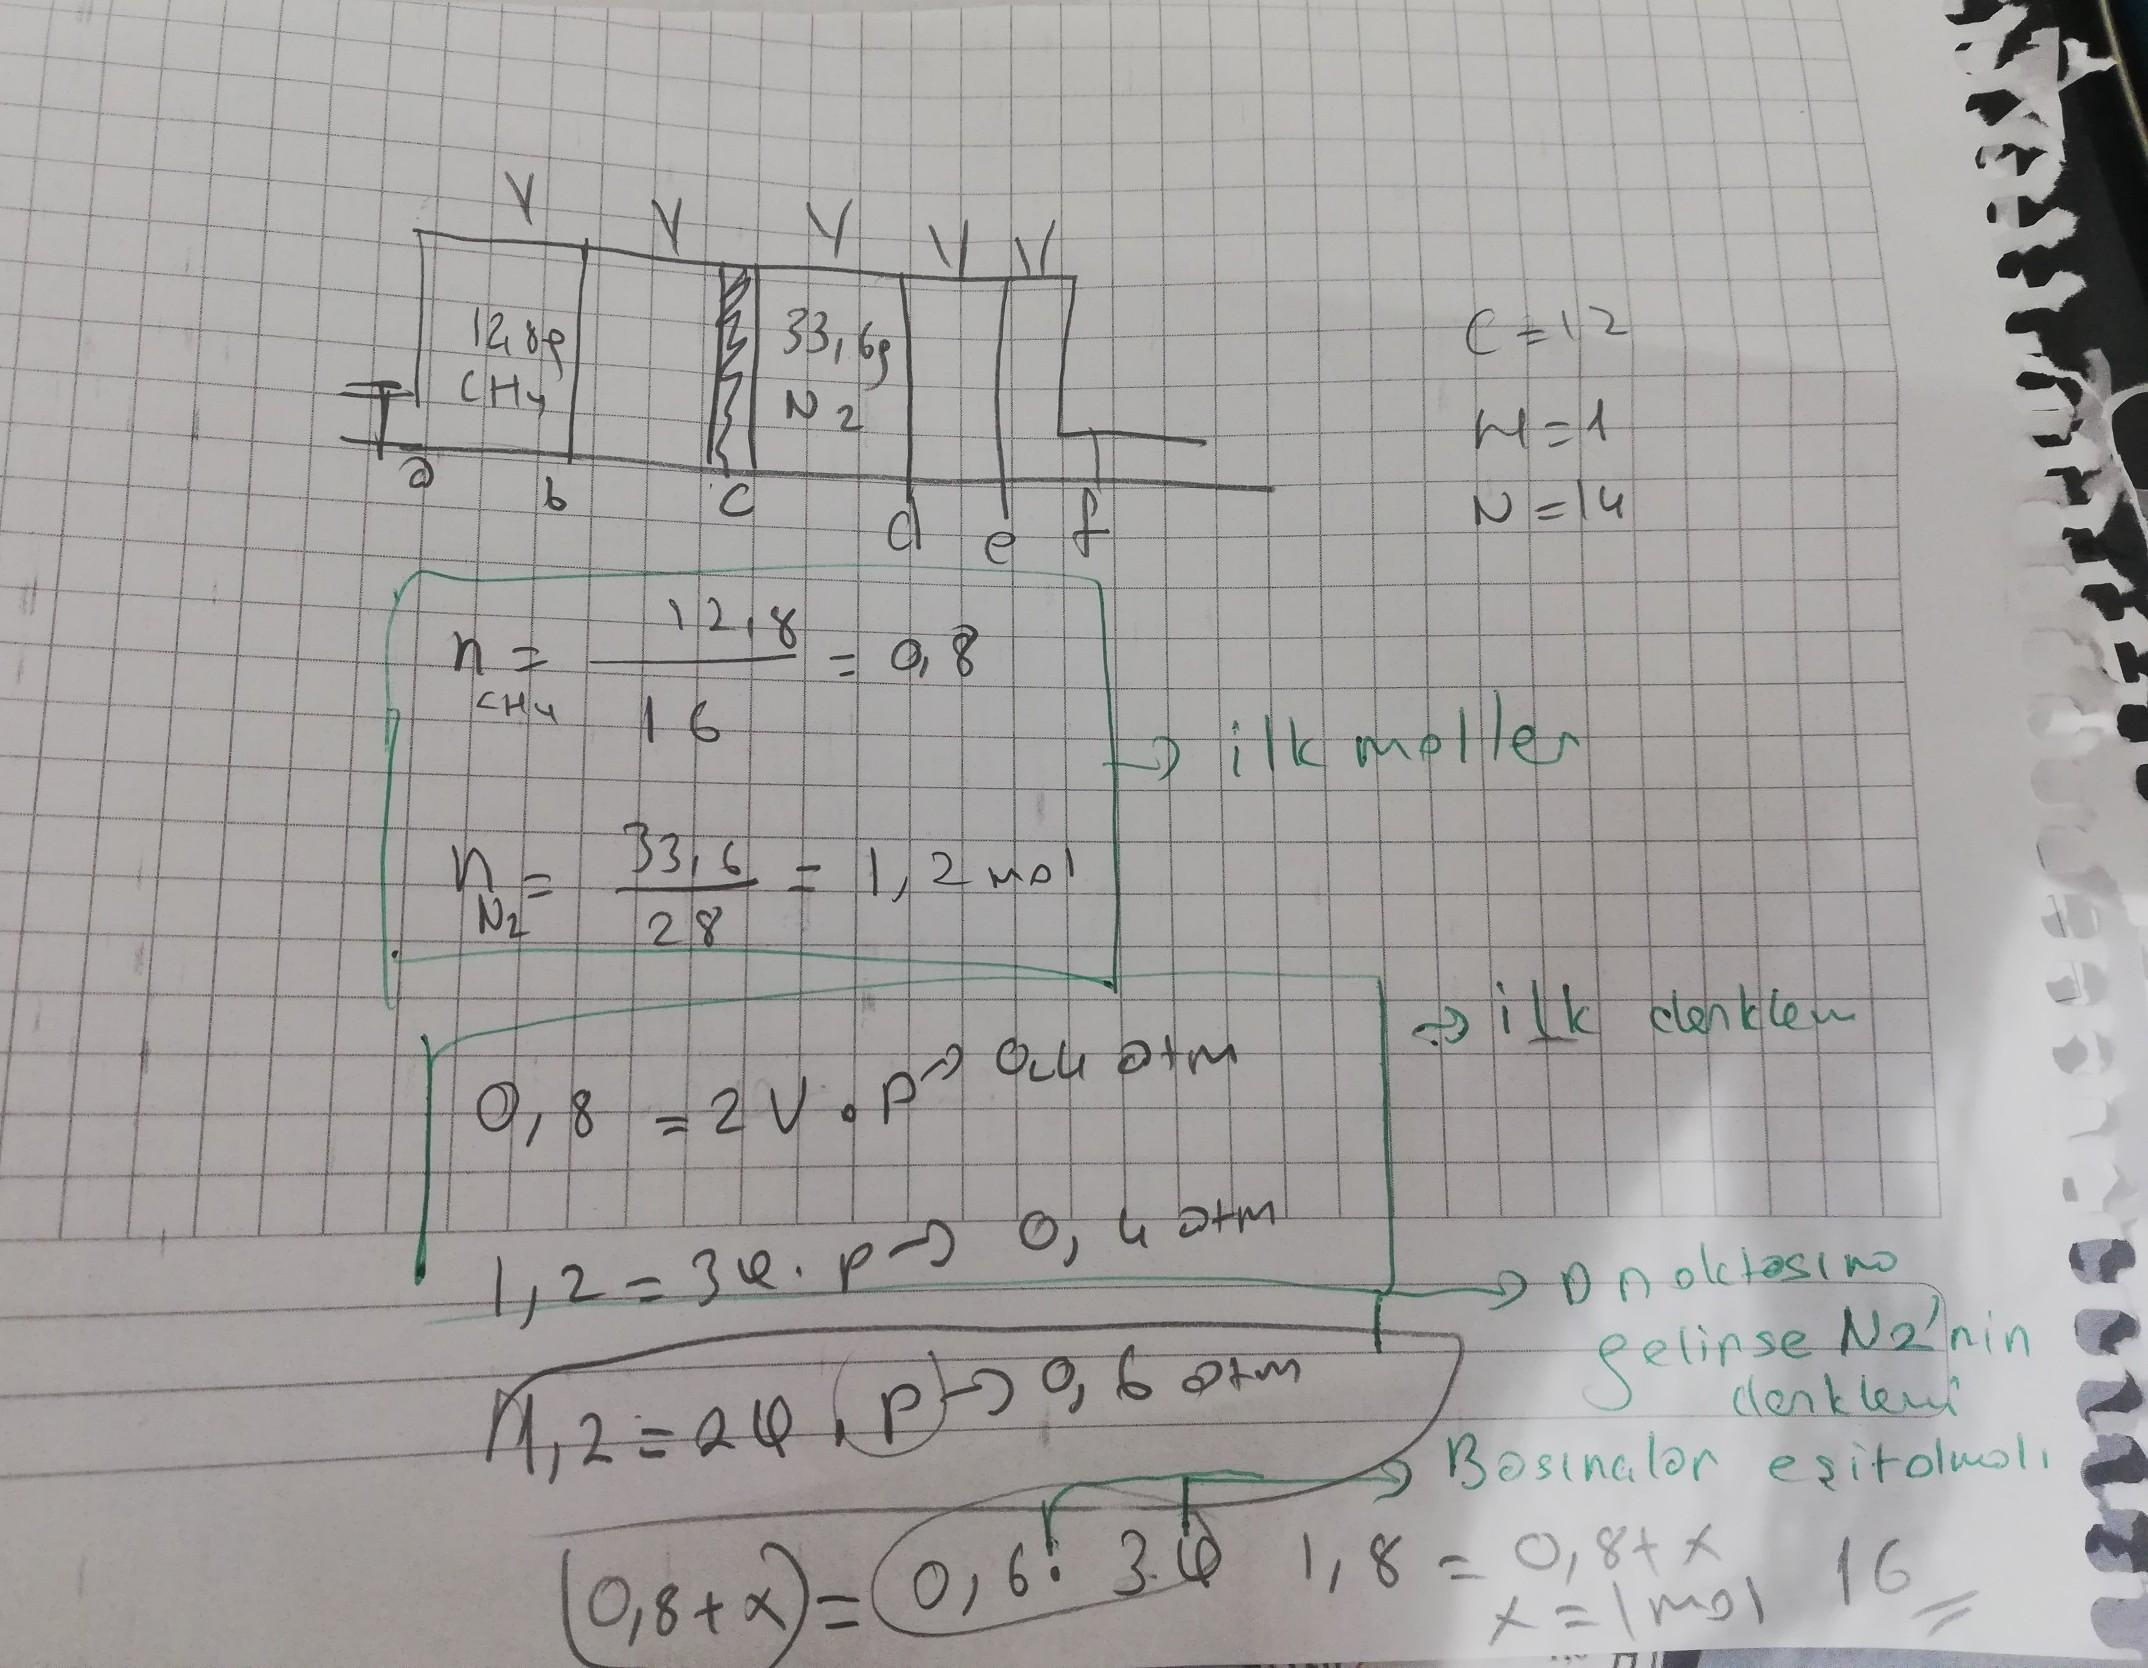 V V V V V
12,8g 33,6g
CH4 N2
C=12
H=1
N=14
a b c d e f
n = 12,8 = 0,8
CH4 16
→ ilk moller
n = 33,6 = 1,2 mol
N2 28
→ ilk denklem
0,8 = 2V . P → 0,4 atm
1,2 = 3V . P → 0,4 atm
→ D noktasına
gelirse N2'nin
denklemi
1,2 = 2V . P → 0,6 atm
→ Basınçlar eşit olmalı
(0,8+x) = 0,6 . 3.V 1,8 = 0,8+x 16
x = 1 mol